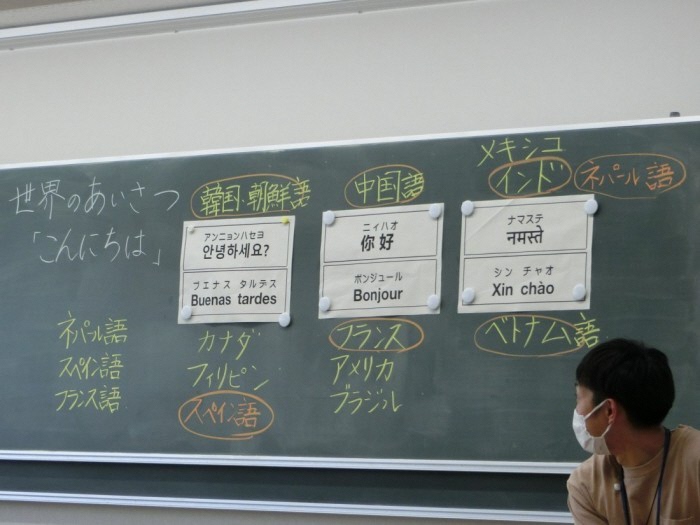 世界のあいさつ
「こんにちは」
ネパール語
スペイン語
フランス語
韓国・朝鮮語
アンニョンハセヨ
안녕하세요?
ブエナス タルデス
Buenas tardes
カナダ
フィリピン
スペイン語
中国語
ニィハオ
你好
ボンジュール
Bonjour
フランス
アメリカ
ブラジル
メキシコ
インド
ネパール語
ナマステ
नमस्ते
シン チャオ
Xin chào
ベトナム語